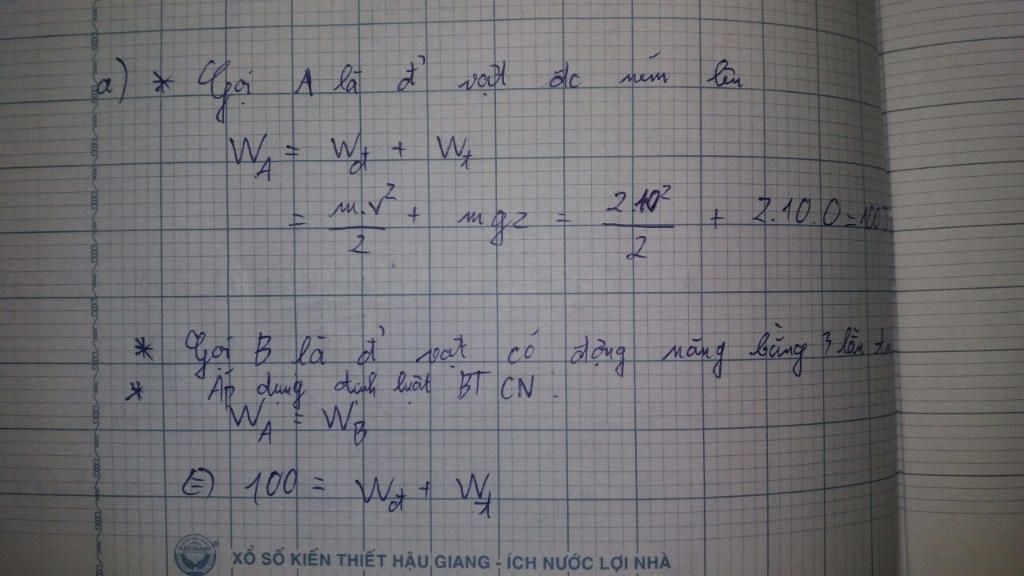 a) * Gọi A là đ' vật đc ném lên
W_A = W_đ + W_t
= m.v²/2 + mgz = 2.10²/2 + 2.10.0 = 100J
* Gọi B là đ' vật có động năng bằng 3 lần
* Áp dụng định luật BT CN :
W_A = W_B
(=) 100 = W_đ + W_t
XỔ SỐ KIẾN THIẾT HẬU GIANG - ÍCH NƯỚC LỢI NHÀ